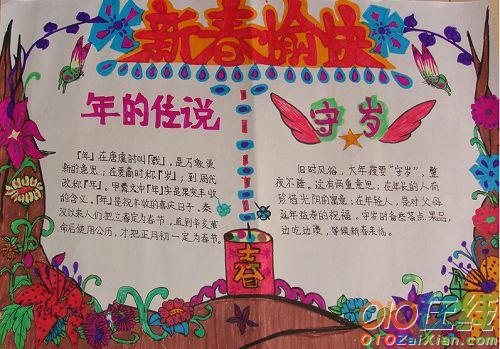 新春愉快
年的传说
「年」在唐虞时叫「载」，是万象更
新的意思；在夏商时称「岁」；到周代
改称「年」。甲骨文中「年」字是果实丰收
的含义，「年」是祝丰收的喜庆日子。秦
汉以来人们把立春定为春节，直到辛亥革
命后使用公历，才把正月初一定为春节。
守岁
旧时风俗，大年夜要“守岁”，整
夜不睡。这有两重意思：在年长的人有
珍惜光阴的寓意；在年轻人，是对父母
延年益寿的祝福。守岁时备些茶点果品，
边吃边谈，等候新春来临。
春
QIQ在线
QIQZaiXian.com